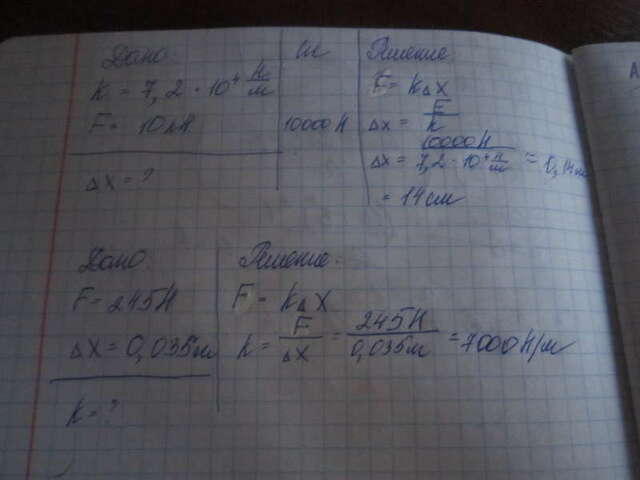 Дано
Си
Решение
K = 7,2 · 10⁴ Н/м
F = 10кН
10000Н
F = KΔX
ΔX = F/k
ΔX = 10000Н / 7,2 · 10⁴ Н/м = 0,14м
= 14см
ΔX = ?
Дано
Решение.
F = 245Н
ΔX = 0,035м
F = KΔX
K = F/ΔX = 245Н/0,035м = 7000Н/м
K = ?